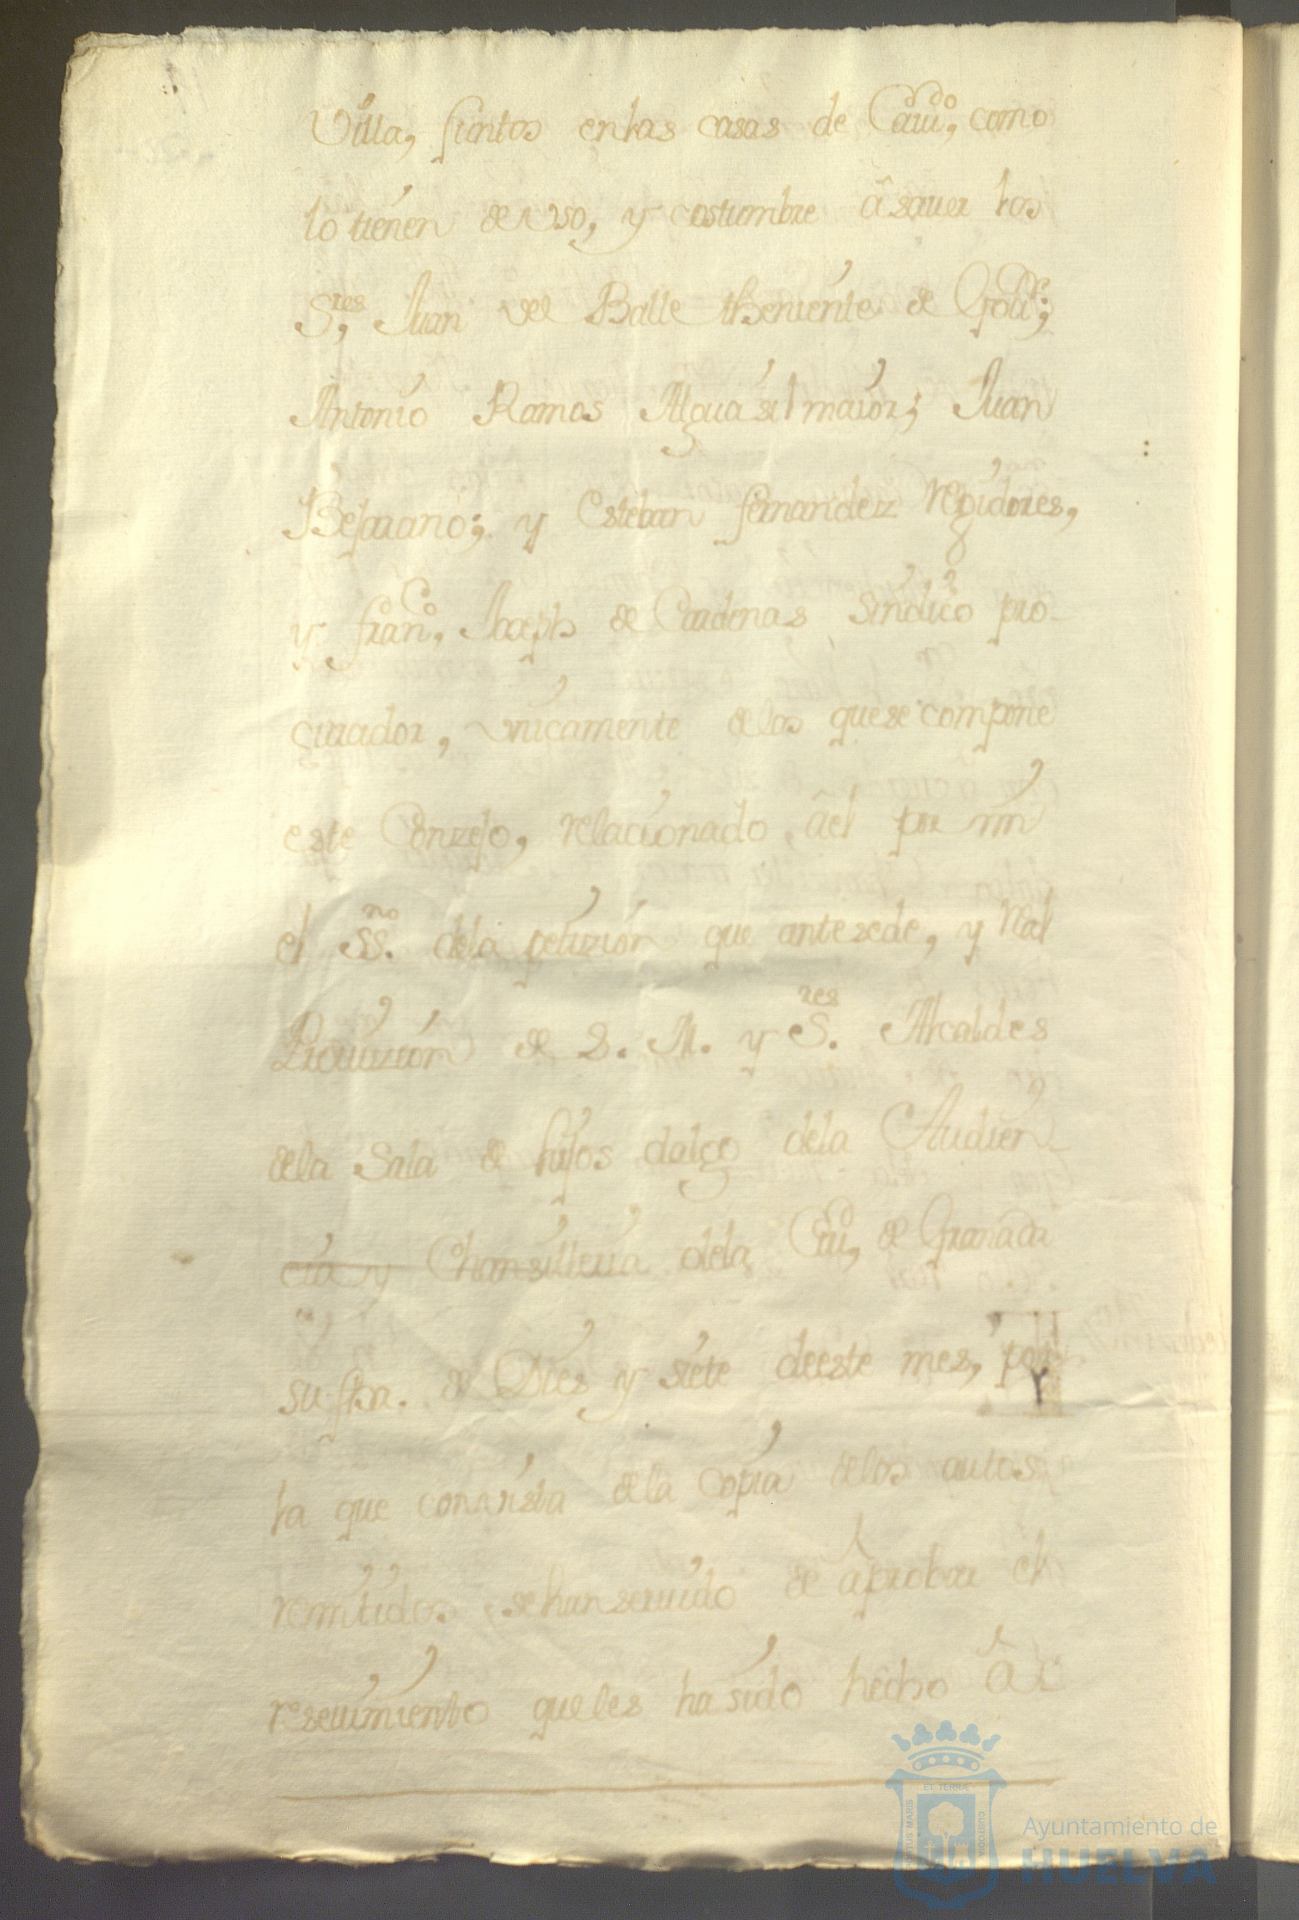 Villa, juntos enlas casas de Cavi.do, como
lo tienen de uso, y costumbre â saver los
S.res, Juan del Balle theniente de
Antonio Ramos Alguasil maior; Juan
Bejarano; y Esteban fernandez regidores,
y fran.co Joseph de Cardenas sindico pro-
curador, unicamente delos que se compone
este Conzejo, relacionado âel por mi
el SS.no dela petizion que antesede, y Real
Provizion de S. M. y S.res Alcaldes
dela Sala de hijos dalgo dela Audien-
cia y Chansilleria dela Ciu.d, de Granada
su fha. de Dies y siete de este mes, por
la que consta dela copia delos autos
remitidos, se han servido de âprobar el
resevimiento que les ha sido hecho â
Ayuntamiento de
HUELVA